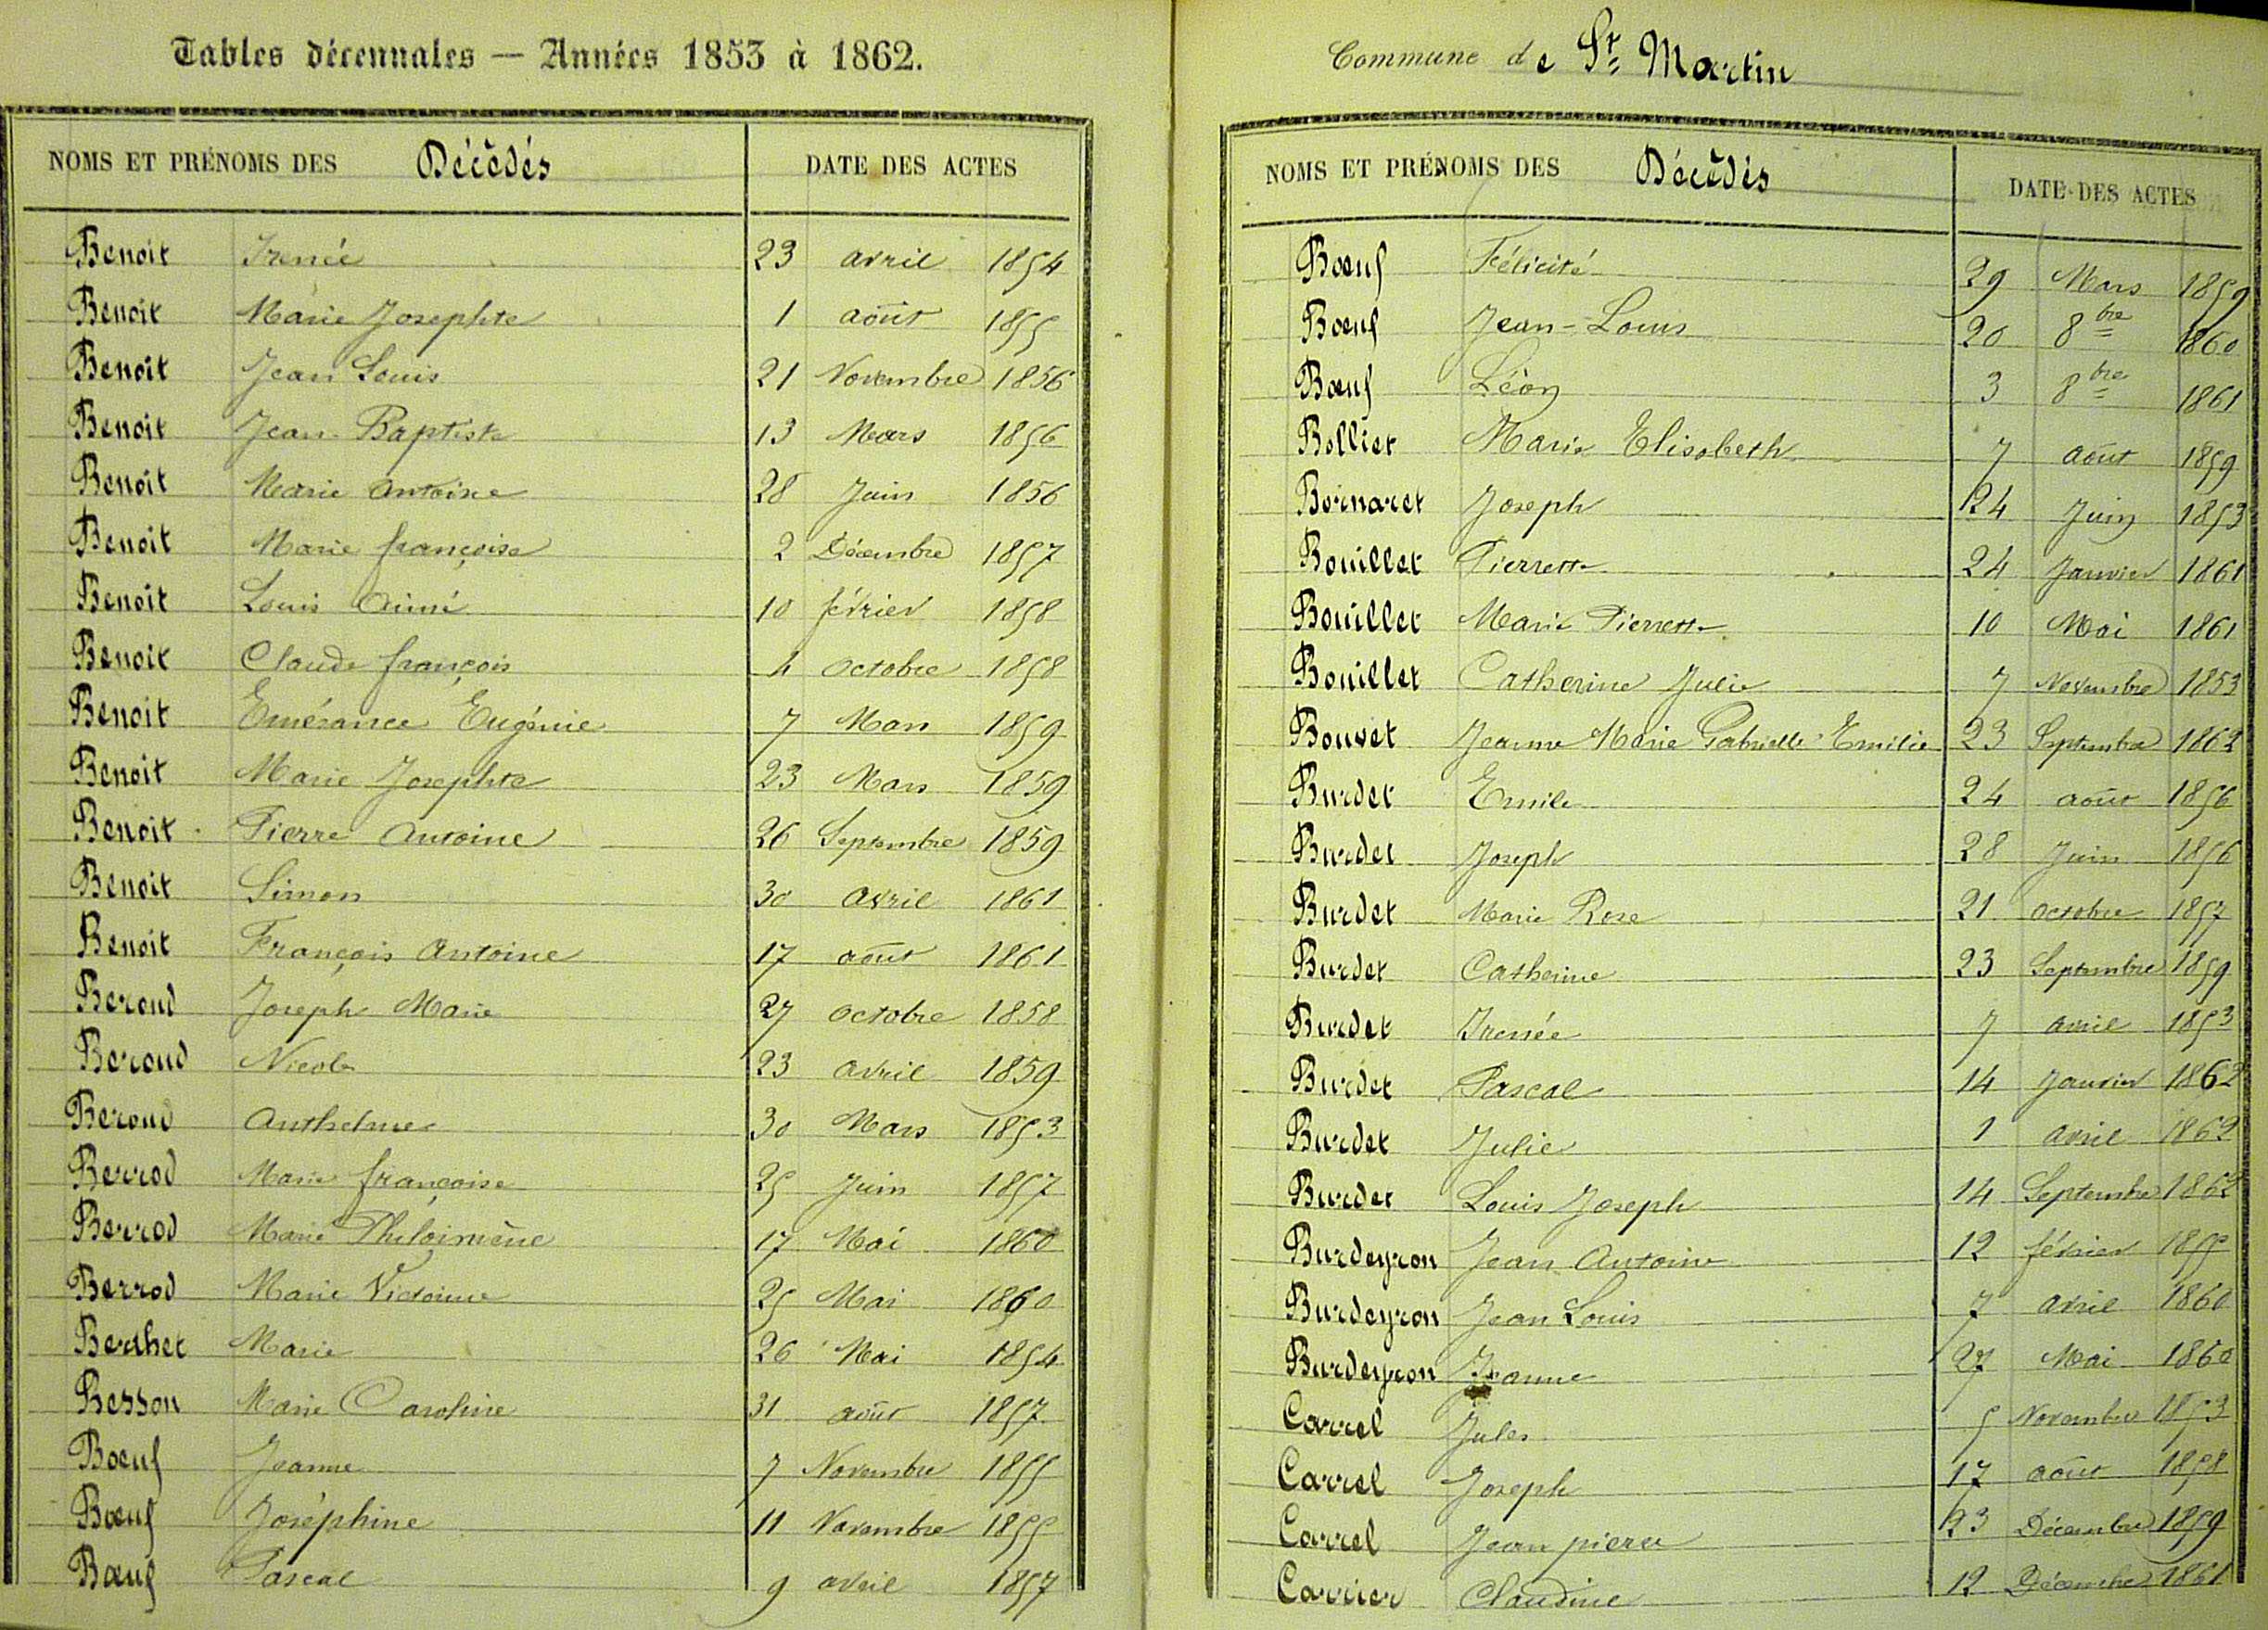 Tables décennales — Années 1853 à 1862.
NOMS ET PRÉNOMS DES Décédés DATE DES ACTES
Benoit Irenée 23 avril 1854
Benoit Marie Josephte 1 août 1855
Benoit Jean Louis 21 Novembre 1856
Benoit Jean-Baptiste 13 Mars 1856
Benoit Marie Antoine 28 Juin 1856
Benoit Marie françoise 2 Décembre 1857
Benoit Louis Aimé 10 février 1858
Benoit Claude françois 4 octobre 1858
Benoit Emérance Eugénie 7 Mars 1859
Benoit Marie Josephte 23 Mars 1859
Benoit Pierre Antoine 26 Septembre 1859
Benoit Simon 30 avril 1861
Benoit François Antoine 17 août 1861
Beroud Joseph Marie 27 octobre 1858
Beroud Nicole 23 avril 1859
Beroud Anthelme 30 Mars 1853
Berrod Marie françoise 25 Juin 1857
Berrod Marie Philoimène 17 Mai 1860
Berrod Marie Victoine 25 Mai 1860
Berthet Marie 26 Mai 1854
Besson Marie Caroline 31 août 1857
Bœuf Jeanne 7 Novembre 1855
Bœuf Joséphine 11 Novembre 1855
Bœuf Pascal 9 avril 1857
Commune de St Martin
NOMS ET PRÉNOMS DES Décédés DATE DES ACTES
Bœuf Félicité 29 Mars 1859
Bœuf Jean-Louis 20 8bre 1860
Bœuf Léon 3 8bre 1861
Bolliet Marie Elisabeth 7 août 1859
Bornaret Joseph 24 Juin 1853
Bouillet Pierrette 24 Janvier 1861
Bouillet Marie Pierrette 10 Mai 1861
Bouillet Catherine Julie 7 Novembre 1853
Bouvet Jeanne Marie Gabrielle Emilie 23 Septembre 1862
Burdet Emile 24 août 1856
Burdet Joseph 28 Juin 1856
Burdet Marie Rose 21 octobre 1857
Burdet Catherine 23 Septembre 1859
Burdet Irenée 7 avril 1853
Burdet Pascal 14 Janvier 1862
Burdet Julie 1 avril 1862
Burdet Louis Joseph 14 Septembre 1862
Burdeyron Jean Antoine 12 février 1855
Burdeyron Jean Louis 7 avril 1860
Burdeyron Jeanne 27 Mai 1860
Carrel Jules 5 Novembre 1853
Carrel Joseph 17 août 1858
Carrel Jean pierre 23 Décembre 1859
Carrier Claudine 12 Décembre 1861